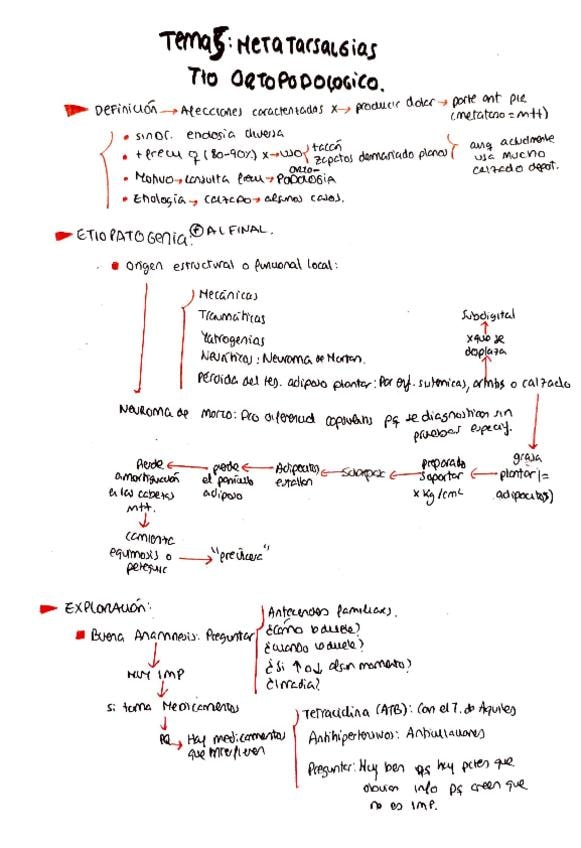 Tema 5: Metatarsalgias
Tto Ortopodologico.
Definición → Afecciones caracterizadas x → producir dolor → parte ant pie
(metatarso = mtt)
• sindr. etiología diversa
• + frecu q (80-90%) x → uso tacón
zapatos demasiado planos
aunq actualmente
usa mucho
calzado deport.
• Motivo → consulta frecu → orto-
Podología
• Etiología → calzado → algunos casos.
Etiopatogenia: + Al final.
• Origen estructural o funcional local:
Mecánicas
Traumáticas
Yatrogenias
Neuríticas: Neuroma de Morton.
Pérdida del tej. adiposo plantar: Por enf. sistémicas, artritis o calzado
Subdigital
↑
xque se
desplaza
Neuroma de morto: Dco diferencial pq se diagnostica sin
pruebas especif.
grasa
plantar (=
adipocitos)
← preparado
soportar
x kg/cm²
←
← Adipocitos
estallan
← pierde
el panículo
adiposo
← Pierde
amortiguación
en las cabezas
mtt.
↓
comienza
equimosis o
petequia
→ "preúlcera"
Exploración:
Buena Anamnesis: Preguntar
Antecedentes familiares.
¿Cómo le duele?
¿Cuándo le duele?
¿Si ↑ o ↓ algún momento?
¿Irradia?
↓
Muy imp
↓
si toma Medicamentos
↓
pq → Hay medicamentos
que interfieren
Tetraciclina (ATB): Con el T. de Aquiles
Antihipertensivos:
Preguntar: Muy bien pq hay pctes que
obvian info pq creen que
no es imp.